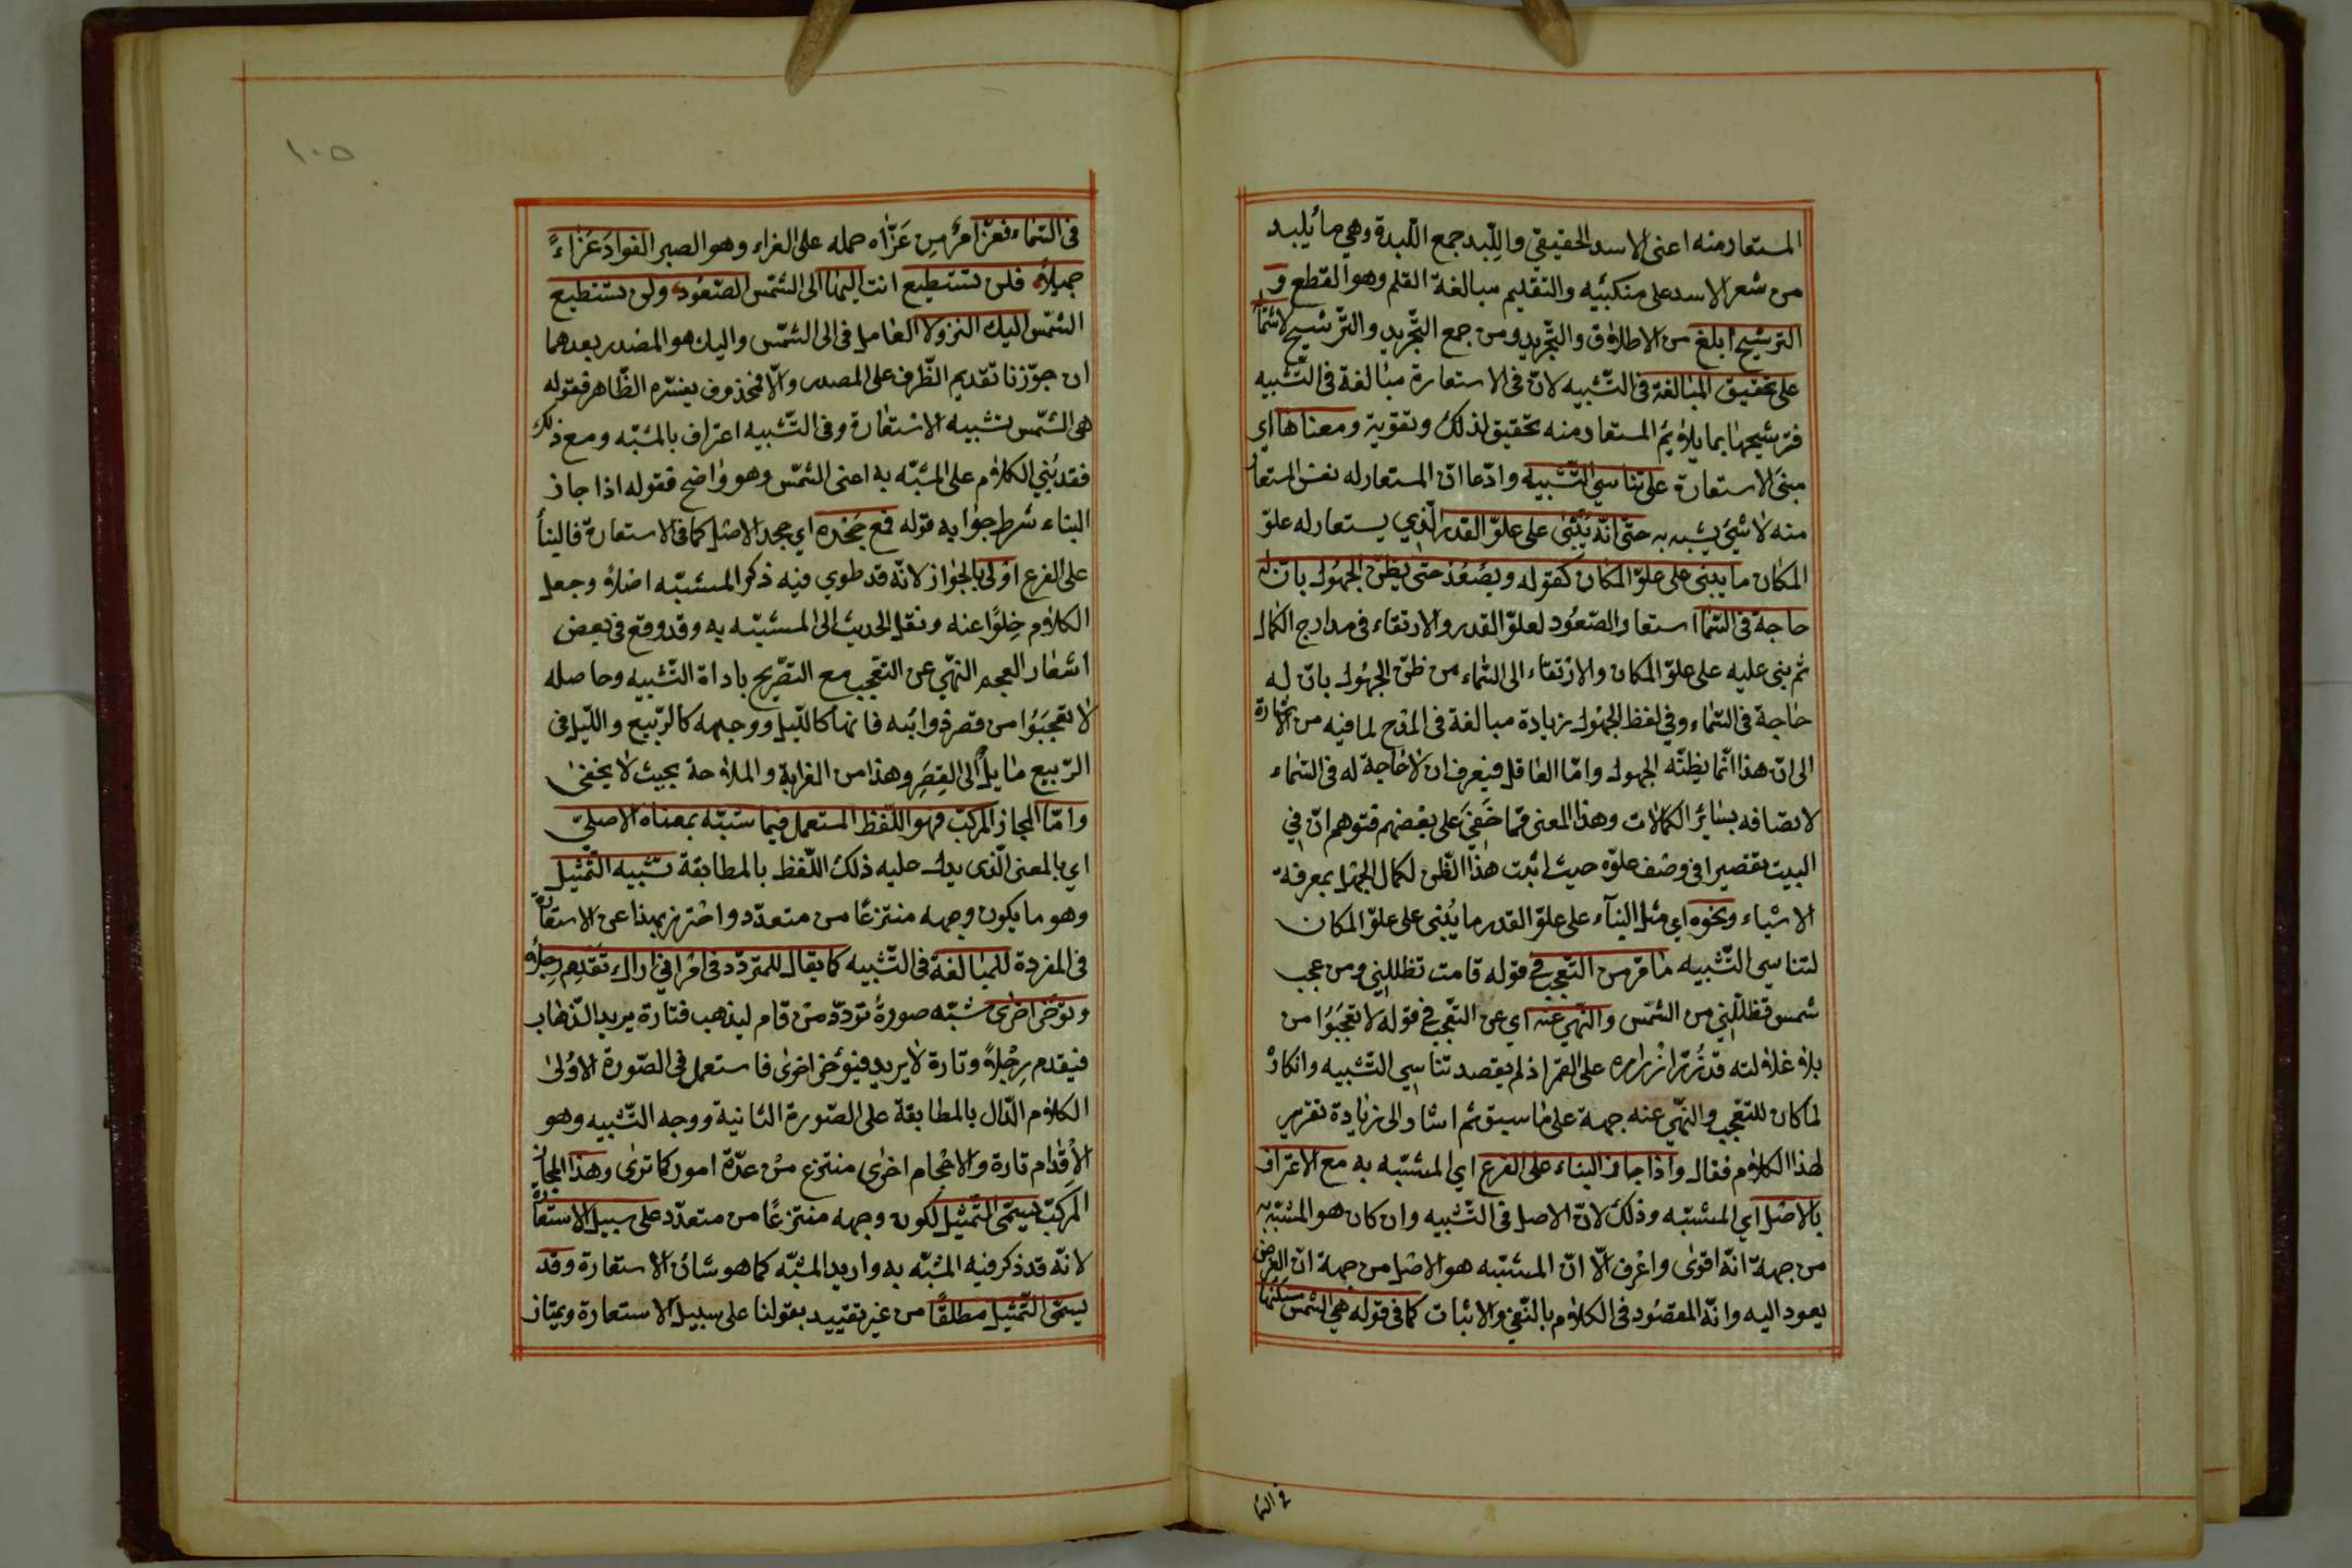 المستعار منه اعنى الاسد الحقيقي واللّبد جمع اللّبدة وهي ما يُلبد
من شعر الاسد على منكبيه والتقليم مبالغة القلم وهو القطع و
الترشيح ابلغ من الاطلاق والتّجريد ومن جمع التّجريد والتّرشيح لاشتماله
على تحقيق المبالغة فى التّشبيه لانّ فى الاستعارة مبالغة فى التّشبيه
فترشيحها بما يلائم المستعار منه تحقيق لذلك وتقوية ومبناها اى
مبنى الاستعارة على تناسي التّشبيه وادّعا انّ المستعار له نفس المستعار
منه لا شيئ يشبه به حتّى انّه يُبنى على علوّ القدر الّذي يستعار له علوّ
المكان ما يبنى على علوّ المكان كقوله ويصعُد حتّى يظنّ الجهُول بانّ له
حاجة فى السّما استعار الصّعُود لعلوّ القدر والارتقاء فى مدارج الكمال
ثم بنى عليه على علوّ المكان والارتقاء الى السّماء من ظنّ الجهُول بانّ له
حاجة فى السّماء وفي لفظ الجهُول زيادة مبالغة فى المدح لما فيه من الاشارة
الى انّ هذا انّما يظنّه الجهول وامّا العاقل فيعرف ان لا حاجة له فى السّماء
لاتصافه بسائر الكمالات وهذا المعنى ممّا خَفِيَ على بعضهم فتوهم انّ في
البيت تقصيرا فى وصف علوّه حيث اثبت هذا الظّن لكمال الجهل بمعرفة
الاشياء ونحوه اي مثل البنآء على علوّ القدر ما يُبنى على علوّ المكان
لتناسي التّشبيه ما مرّ من التّعجب في قوله قامت تظللني ومن عجب
شمس تظللني من الشمس والنّهي عنه اي عن التّعجب في قوله لا تعجبُوا من
بلى غلالته قد زُرّ ازراره على القمر اذ لو لم يقصد تناسي التّشبيه وانكاره
لما كان للتعجب والنّهي عنه جهة على ما سبق ثم اشار الى زيادة تقرير
لهذا الكلام فقال واذا جاز البناء على الفرع اي المشبّه به مع الاعتراف
بالاصل اي المشبّه وذلك لانّ الاصل فى التّشبيه وان كان هو المشبّه به
من جهة انّه اقوى واعرف الّا انّ المشبّه هو الاصل من جهة انّ الغرض
يعود اليه وانّه المقصُود فى الكلام بالنّفي والاثبات كما فى قوله هي الشّمس مسكنها
في السّما
١٠٥
فى السّماء فعزّ امرٌ من عَزّاه حمله على العزاء وهو الصبر الفواد عَزاءً
جميلًا فلن تستطيع انت اليها الى الشّمس الصّعُود ولن تستطيع
الشّمس اليك النزولا العامل فى الى الشّمس واليك هو المصدر بعدهما
ان جوّزنا تقديم الظّرف على المصدر والّا فمحذوف يفسّره الظّاهر فقوله
هى الشّمس تشبيه لا استعارة وفى التّشبيه اعتراف بالمشبّه ومع ذلك
فقد بُني الكلام على المشبّه به اعنى الشّمس وهو واضح فقوله اذا جاز
البناء شرط جوابه قوله فمع جحده اي جحد الاصل كما فى الاستعارة فالبنا
على الفرع اولى بالجواز لانّه قد طوي فيه ذكر المشبّه اصلا وجعل
الكلام خِلوًا عنه ونقل الحديث الى المشبّه به وقد وقع فى بعض
اشعار العجم النهّي عن التعّجب مع التصّريح باداة التّشبيه وحاصله
لا تعجبُوا من قصر ذوائبه فانها كاللّيل ووجهه كالرّبيع واللّيل فى
الرّبيع مايلٌ الى القِصَر وهذا من الغرابة والملاحة بحيث لا يخفى
وامّا المجاز المركّب فهو اللّفظ المستعمل فيما شبّه بمعناه الاصليّ
اي بالمعنى الّذى يدل عليه ذلك اللّفظ بالمطابقة تشبيه التّمثيل
وهو ما يكون وجهه منتزعًا من متعدّد واحترز بهذا عن الاستعارة
فى المفردة للمبالغة فى التّشبيه كما يقال للمتردّد فى امر اني اراك تقدّم رجلا
وتؤخّر اخرى شبّه صورة تردّد من قام ليذهب فتارة يريد الذّهاب
فيقدم رِجْلًا وتارة لا يريد فيؤخر اخرى فاستعمل فى الصّورة الاولى
الكلام الدّال بالمطابقة على الصّورة الثانية ووجه التّشبيه وهو
الاقدام تارة والاحجام اخرى منتزع من عدّة امور كما ترى وهذا المجاز
المركّب يسمّى التّمثيل لكون وجهه منتزعًا من متعدّد على سبيل الاستعارة
لانّه قد ذكر فيه المشبّه به واريد المشبّه كما هو شان الاستعارة وقد
يسمّى التّمثيل مطلقًا من غير تقييد بقولنا على سبيل الاستعارة ويمتاز